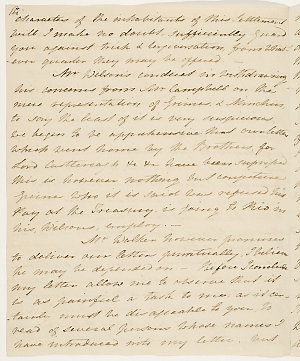 character of the inhabitants of this Settlement
will I make no doubt, sufficiently guard
you against such a
ever quarter they may be offered —
Mr Wilson's conduct in withdrawing
his concerns from Mr Campbell on the
mere representation of Grimes & Minchin,
to say the least of it is very suspicious
we begin to be apprehensive that our letter
which went home by the Brothers, for
Lord Castlerea &c &c have been suppressed
this is however nothing but conjecture
Grimes who it is said was refused his
Pay at the Treasury is going to Rio in
his, Wilsons, employ. —
Mr Walker however promises
to deliver our letters punctually, I believe
he may be depended on — Before I conclude
my letter allow me to observe that it
is as painful a task to me as it cer-
tainly must be disagreeable to you to
read of several persons whose names I
have introduced into my letter. but